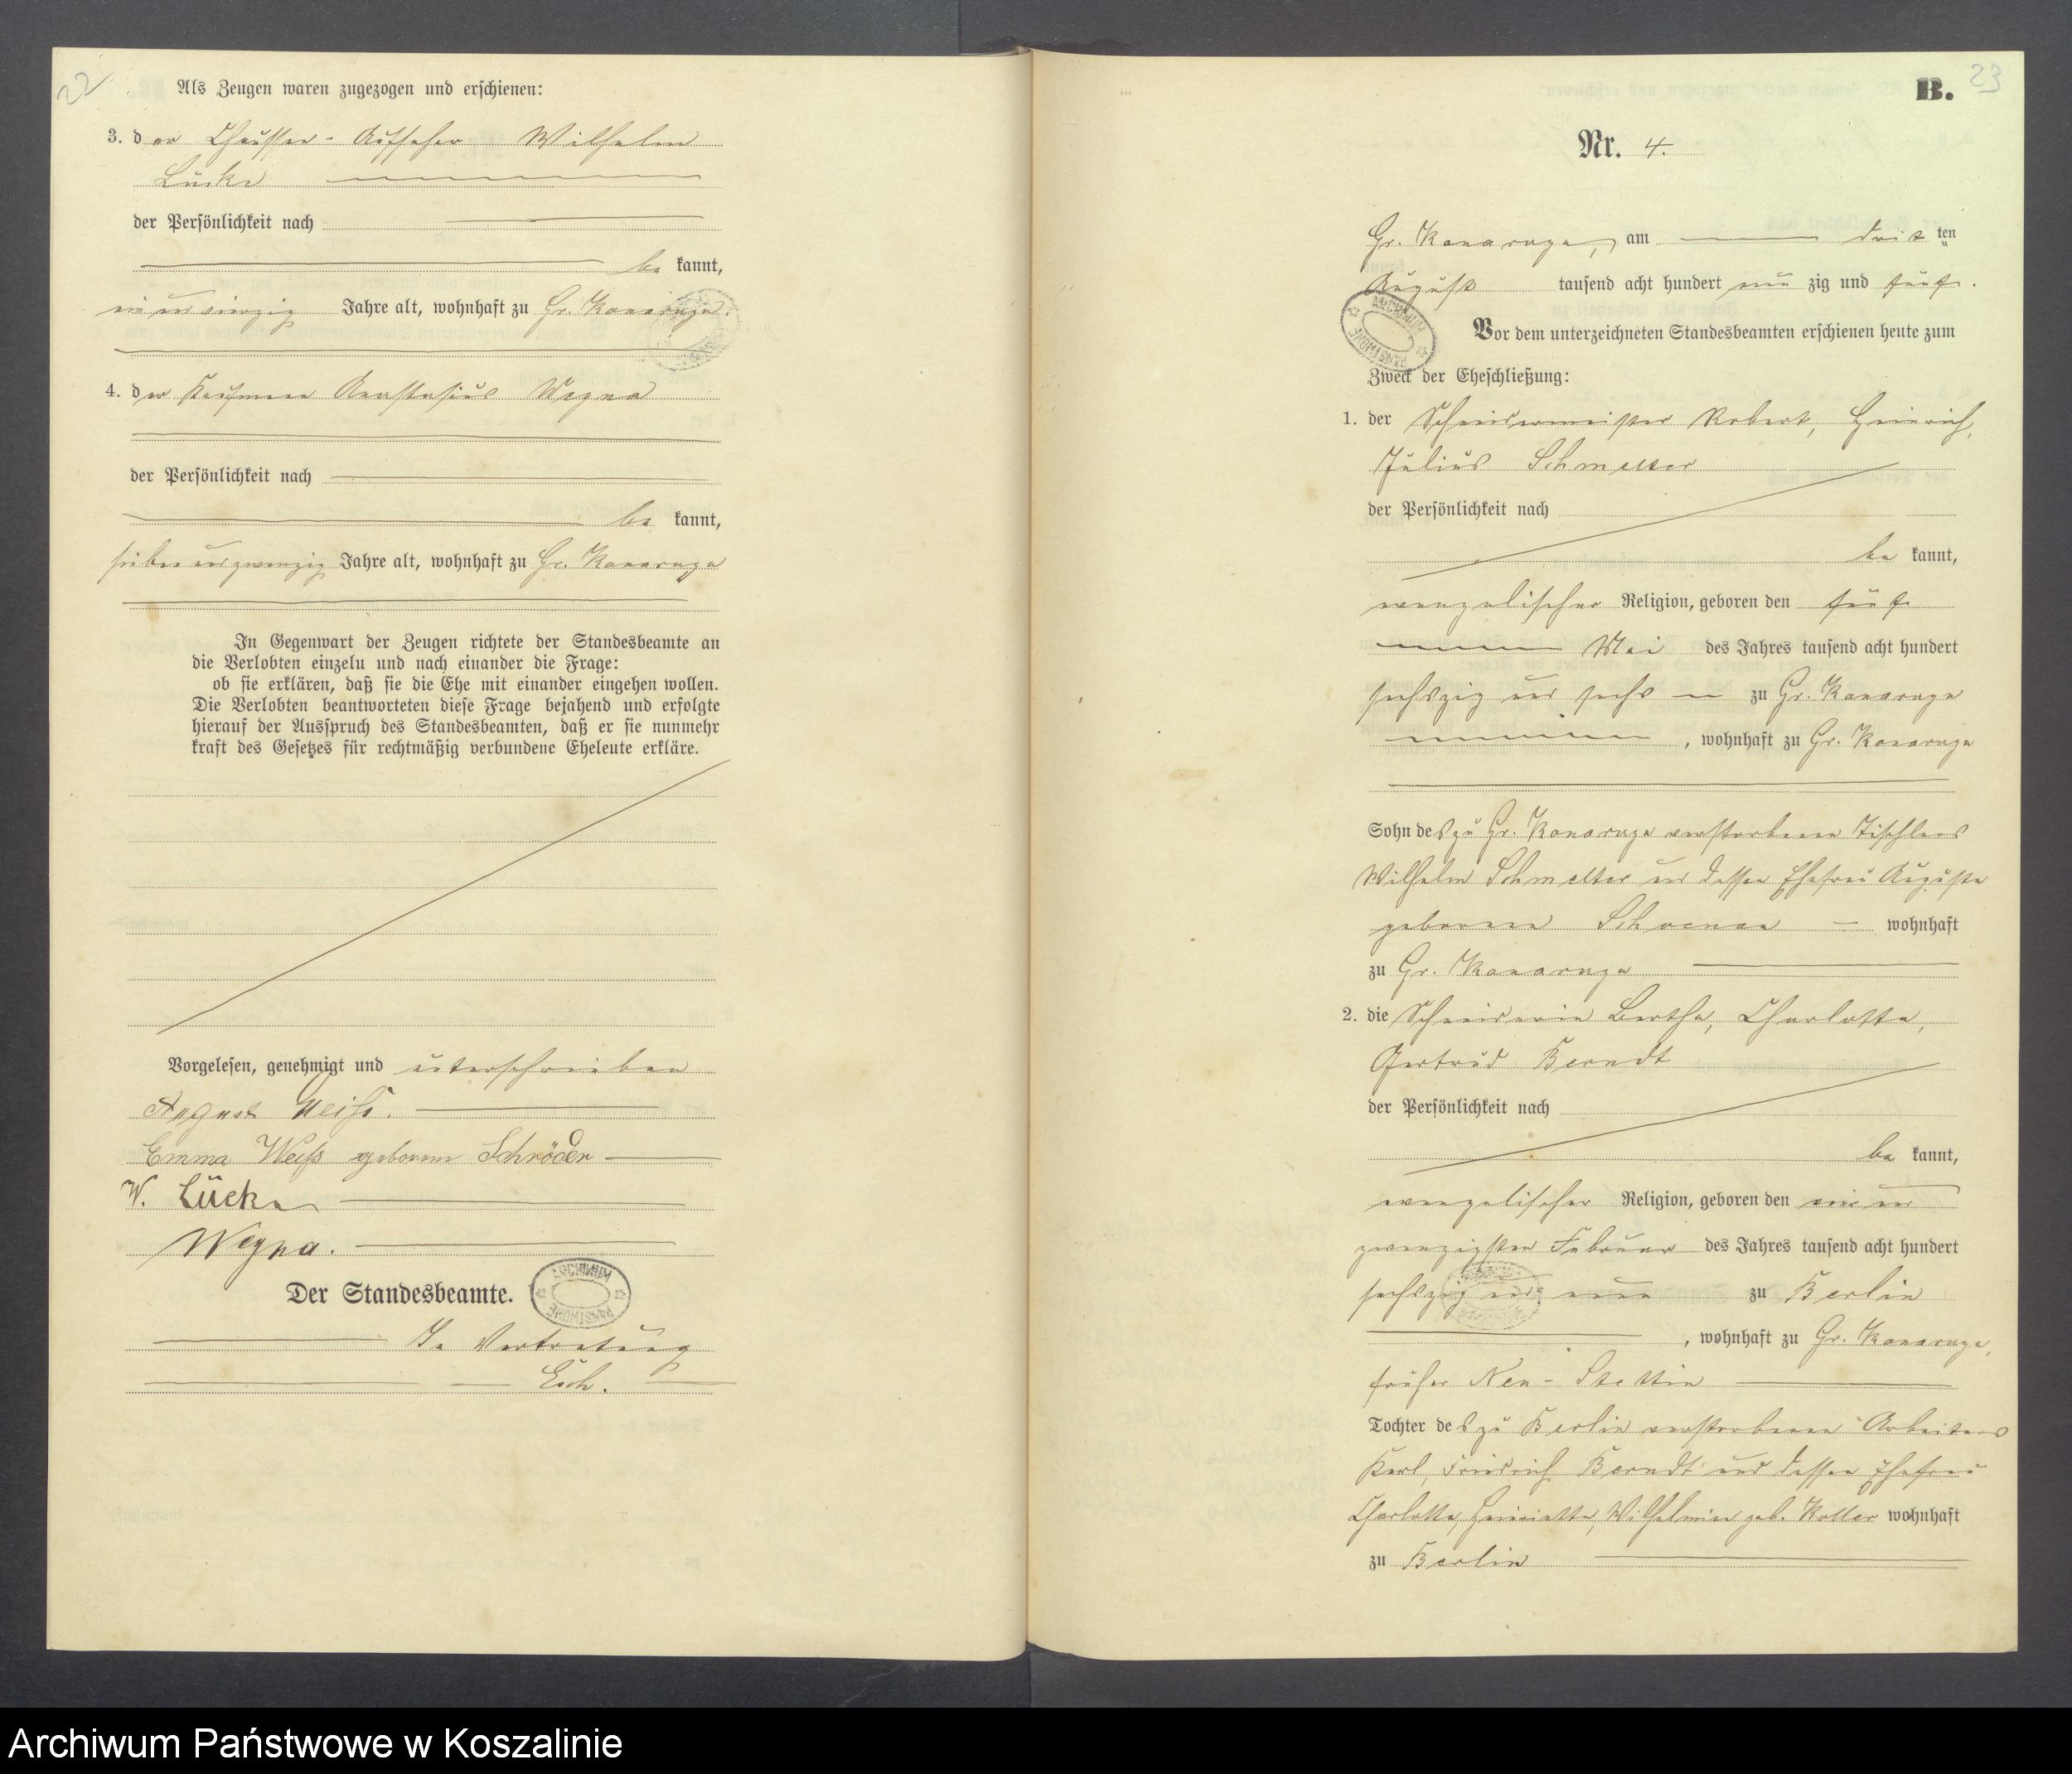 22
Als Zeugen waren zugezogen und erschienen:
3. der Chaussee-Aufseher Wilhelm
Lücke
der Persönlichkeit nach
be kannt,
ein und vierzig Jahre alt, wohnhaft zu Gr. Konarczyn.
4. der Kaufmann Anastasius Wegna
der Persönlichkeit nach
be kannt,
sieben und zwanzig Jahre alt, wohnhaft zu Gr. Konarczyn
In Gegenwart der Zeugen richtete der Standesbeamte an
die Verlobten einzeln und nach einander die Frage:
ob sie erklären, daß sie die Ehe mit einander eingehen wollen.
Die Verlobten beantworteten diese Frage bejahend und erfolgte
hierauf der Ausspruch des Standesbeamten, daß er sie nunmehr
kraft des Gesetzes für rechtmäßig verbundene Eheleute erkläre.
Vorgelesen, genehmigt und unterschrieben
August Weiß.
Emma Weiß geborene Schröder
W. Lücke
Wegna.
Der Standesbeamte.
ARCHIWUM PAŃSTWOWE
In Vertretung
23
B.
Nr. 4.
am dritten
August tausend acht hundert neunzig und fünf.
ARCHIWUM PAŃSTWOWE
Vor dem unterzeichneten Standesbeamten erschienen heute zum
Zweck der Eheschließung:
1. der Schneidermeister Robert, Heinrich,
Julius Schmelter
der Persönlichkeit nach
be kannt,
evangelischer Religion, geboren den fünf
Mai des Jahres tausend acht hundert
sechszig und sechs zu
, wohnhaft zu
Sohn des zu verstorbenen Tischlers
Wilhelm Schmelter und dessen Ehefrau Auguste
geborene wohnhaft
zu
2. die Schneiderin Bertha, Charlotte,
Gertrud Berndt
der Persönlichkeit nach
be kannt,
evangelischer Religion, geboren den ein und
zwanzigsten Februar des Jahres tausend acht hundert
sechszig und neun zu Berlin
, wohnhaft zu
früher Neu-Stettin
Tochter des zu Berlin verstorbenen Arbeiters
Karl, Friedrich Berndt und dessen Ehefrau
Charlotte, Henriette, Wilhelmine geb. wohnhaft
zu Berlin
Archiwum Państwowe w Koszalinie